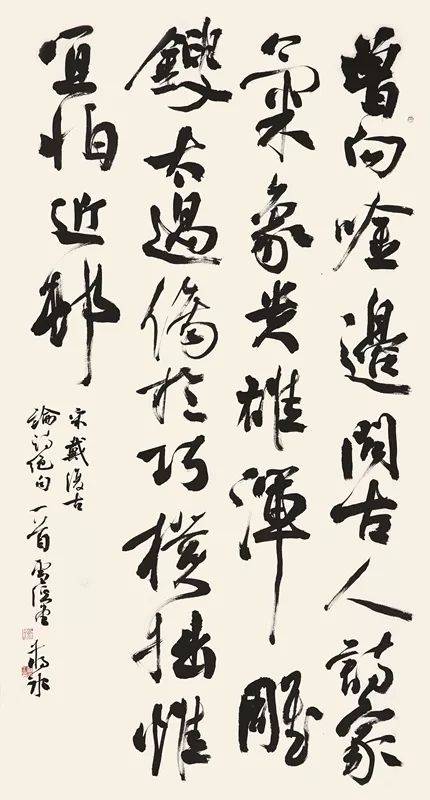 曾向唫邊問古人詩家
氣象貴雄渾雕
鎪太過傷於巧樸拙惟
宜怕近邨
宋戴復古
論詩絕句一首